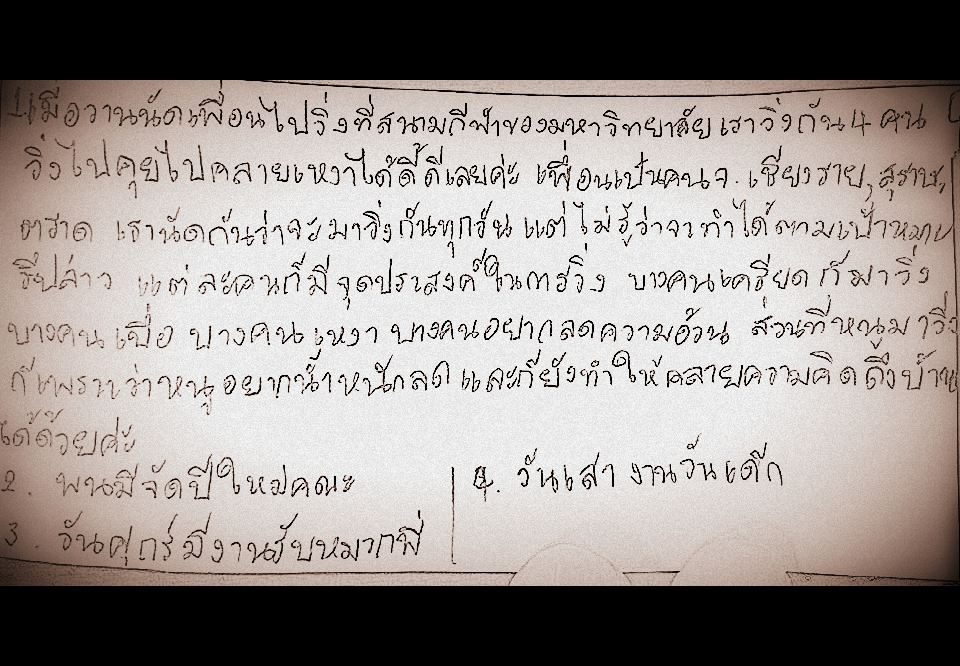 1. เมื่อวานนัดเพื่อนไปวิ่งที่สนามกีฬาของมหาวิทยาลัย เราวิ่งกัน 4 คน
วิ่งไปคุยไปคลายเหงาได้ดี๊ดีเลยค่ะ เพื่อนเป็นคนจ. เชียงราย, สุราษ,
ตราด เรานัดกันว่าจะมาวิ่งกันทุกวัน แต่ไม่รู้ว่าจะทำได้ตามเป้าหมาย
รึปล่าว แต่ละคนก็มีจุดประสงค์ในการวิ่ง บางคนเครียดก็มาวิ่ง
บางคนเบื่อ บางคนเหงา บางคนอยากลดความอ้วน ส่วนที่หนูมาวิ่ง
ก็เพราะว่าหนูอยากน้ำหนักลด และก็ยังทำให้คลายความคิดถึงบ้าน
ได้ด้วยค่ะ
2. พนมีจัดปีใหม่คณะ
3. วันศุกร์มีงานรับหมวกพี่
4. วันเสา งานวันเด๊ก